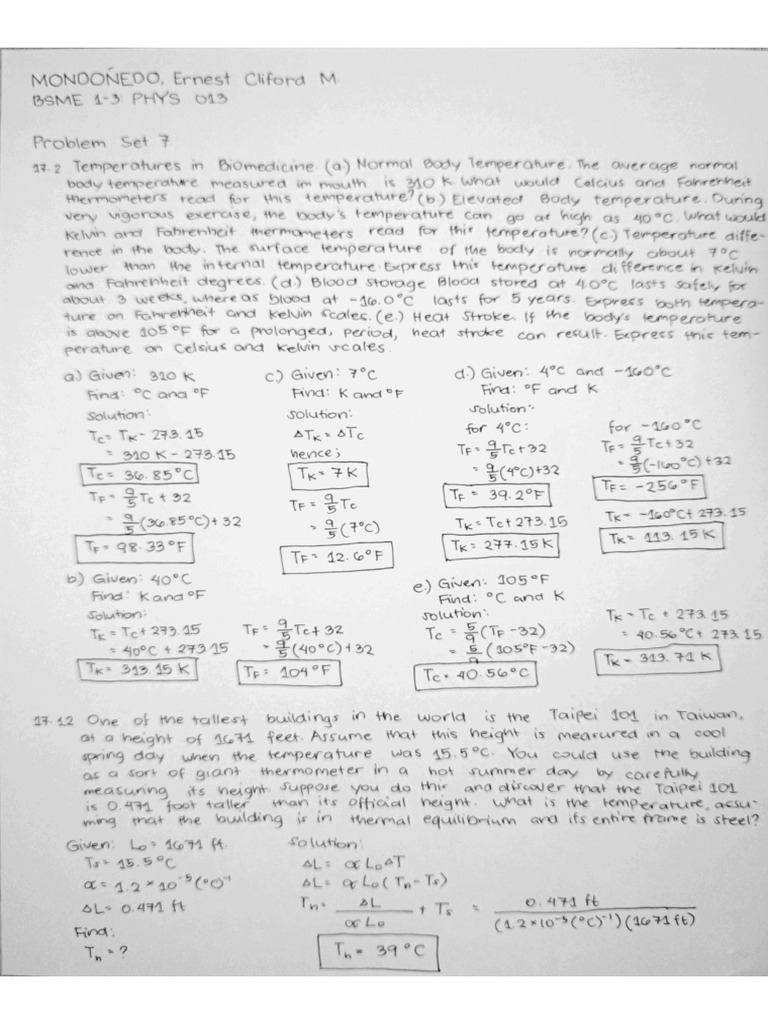 MONDOÑEDO, Ernest Cliford M.
BSME 1-3 PHYS 013
Problem Set 7
17.2 Temperatures in Biomedicine. (a) Normal Body Temperature. The average normal
body temperature measured in mouth is 310 K. What would Celcius and Fahrenheit
thermometers read for this temperature? (b.) Elevated Body temperature. During
very vigorous exercise, the body's temperature can go as high as 40°C. What would
Kelvin and Fahrenheit thermometers read for this temperature? (c.) Temperature diffe-
rence in the body. The surface temperature of the body is normally about 7°C
lower than the internal temperature. Express this temperature difference in Kelvin
and Fahrenheit degrees. (d.) Blood storage Blood stored at 4.0°C lasts safely for
about 3 weeks, where as blood at -16.0°C lasts for 5 years. Express both tempera-
ture on Fahrenheit and Kelvin scales. (e.) Heat Stroke. If the body's temperature
is above 105°F for a prolonged, period, heat stroke can result. Express this tem-
perature on Celsius and Kelvin scales.
a.) Given: 310 K
Find: °C and °F
Solution:
Tc = Tk - 273.15
= 310 K - 273.15
Tc = 36.85°C
TF = 9/5 Tc + 32
= 9/5 (36.85°C) + 32
TF = 98.33°F
c.) Given: 7°C
Find: K and °F
Solution:
ΔTk = ΔTc
hence;
Tk = 7K
TF = 9/5 Tc
= 9/5 (7°C)
TF = 12.6°F
d.) Given: 4°C and -160°C
Find: °F and K
solution:
for 4°C:
TF = 9/5 Tc + 32
= 9/5 (4°C) + 32
TF = 39.2°F
Tk = Tc + 273.15
Tk = 277.15 K
for -160°C
TF = 9/5 Tc + 32
= 9/5 (-160°C) + 32
TF = -256°F
Tk = -160°C + 273.15
Tk = 113.15 K
b.) Given: 40°C
Find: K and °F
Solution:
Tk = Tc + 273.15
= 40°C + 273.15
Tk = 313.15 K
TF = 9/5 Tc + 32
= 9/5 (40°C) + 32
TF = 104°F
e.) Given: 105°F
Find: °C and K
solution:
Tc = 5/9 (TF - 32)
= 5/9 (105°F - 32)
Tc = 40.56°C
Tk = Tc + 273.15
= 40.56°C + 273.15
Tk = 313.71 K
17.12 One of the tallest buildings in the world is the Taipei 101 in Taiwan,
at a height of 1671 feet. Assume that this height is measured in a cool
spring day when the temperature was 15.5°C. You could use the building
as a sort of giant thermometer in a hot summer day by carefully
measuring its height. Suppose you do this and discover that the Taipei 101
is 0.471 foot taller than its official height. What is the temperature, assu-
ming that the building is in thermal equilibrium and its entire frame is steel?
Given: Lo = 1671 ft.
Ts = 15.5°C
α = 1.2 × 10⁻⁵ (°C)⁻¹
ΔL = 0.471 ft
Find:
Th = ?
Solution:
ΔL = α Lo ΔT
ΔL = α Lo (Th - Ts)
Th = ΔL / α Lo + Ts = 0.471 ft / (1.2 × 10⁻⁵ (°C)⁻¹) (1671 ft)
Th = 39°C